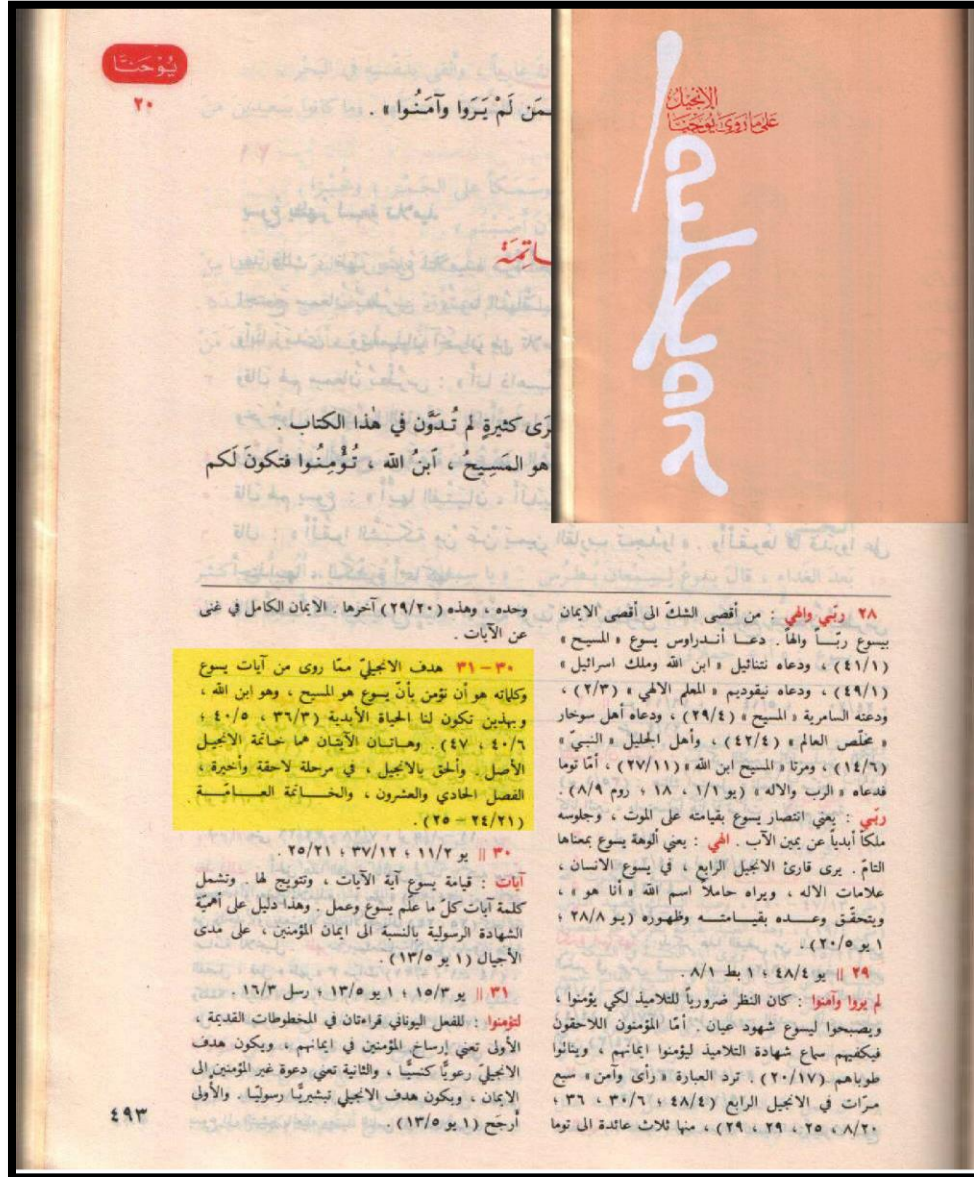 يُوحَنَّا
٢٠
الإنجيل
عَلَى مَا رَوَى يُوحَنَّا
ـمَن لَمْ يَرَوا وآمَنُوا » .
ـاتِمَة
ـرَى كثيرةٍ لم تُدَوَّن في هٰذا الكتاب .
هو المَسِيحُ ، ٱبنُ الله ، تُؤْمِنُوا فتكونَ لَكم
٢٨ ربّي والهي : من أقصى الشكّ الى أقصى الايمان
بيسوع ربّـاً والهاً . دعـا أنـدراوس يسوع « المسيح »
(٤١/١) ، ودعاه نتنائيل « ابن الله وملك اسرائيل »
(٤٩/١) ، ودعاه نيقوديم « المعلم الالهي » (٢/٣) ،
ودعته السامرية « المسيح » (٢٩/٤) ، ودعاه أهل سوخار
« مخلّص العالم » (٤٢/٤) ، وأهل الجليل « النبيّ »
(١٤/٦) ، ومرتا « المسيح ابن الله » (٢٧/١١) ، أمّا توما
فدعاه « الرب والاله » (يو ١/١ ، ١٨ ؛ روم ٨/٩) .
ربّي : يعني انتصار يسوع بقيامته على الموت ، وجلوسه
ملكاً أبدياً عن يمين الآب . الهي : يعني ألوهة يسوع بمعناها
التامّ . يرى قارئ الانجيل الرابع ، في يسوع الانسان ،
علامات الاله ، ويراه حاملاً اسم الله « أنا هو » ،
ويتحقّـق وعـــده بقيـــامتـــه وظهـوره (يـو ٢٨/٨ ؛
١ يو ٢٠/٥) .
٢٩ || يو ٤٨/٤ ؛ ١ بط ٨/١ .
لم يروا وآمنوا : كان النظر ضرورياً للتلاميذ لكي يؤمنوا ،
ويصبحوا ليسوع شهود عيان . أمّا المؤمنون اللاحقون
فيكفيهم سماع شهادة التلاميذ ليؤمنوا ايمانهم ، وينالوا
طوباهم (٢٠/١٧) . ترد العبارة « رأى وآمن » سبع
مـرّات في الانجيل الرابع (٤٨/٤ ؛ ٣٠/٦ ، ٣٦ ؛
٨/٢٠ ، ٢٥ ، ٢٩ ، ٢٩) ، منها ثلاث عائدة الى توما
وحده ، وهذه (٢٩/٢٠) آخرها . الايمان الكامل في غنى
عن الآيات .
٣٠ – ٣١ هدف الانجيليّ ممّا روى من آيات يسوع
وكلماته هو أن نؤمن بأنّ يسوع هو المسيح ، وهو ابن الله ،
وبهذين تكون لنا الحياة الأبدية (٣٦/٣ ، ٤٠/٥ ؛
٤٠/٦ ، ٤٧) . وهـاتـان الآيتـان هما خـاتمة الانجيـل
الأصل . وألحق بالانجيل ، في مرحلة لاحقة وأخيرة ،
الفصل الحادي والعشرون ، والخـــاتمة العـــامّـــة
(٢٤/٢١ – ٢٥) .
٣٠ || يو ١١/٢ ؛ ٣٧/١٢ ؛ ٢٥/٢١ .
آيات : قيامة يسوع آية الآيات ، وتتويج لها . وتشمل
كلمة آيات كلّ ما علّم يسوع وعمل . وهذا دليل على أهميّة
الشهادة الرسولية بالنسبة الى ايمان المؤمنين ، على مدى
الأجيال (١ يو ١٣/٥) .
٣١ || يو ١٥/٣ ؛ ١ يو ١٣/٥ ؛ رسل ١٦/٣ .
لتؤمنوا : للفعل اليوناني قراءتان في المخطوطات القديمة ،
الأولى تعني إرساخ المؤمنين في ايمانهم ، ويكون هدف
الانجيليّ رعويًّا كنسيًّا ، والثانية تعني دعوة غير المؤمنين الى
الايمان ، ويكون هدف الانجيلي تبشيريًّـا رسوليًّـا . والأولى
أرجَح (١ يو ١٣/٥) .
٤٩٣